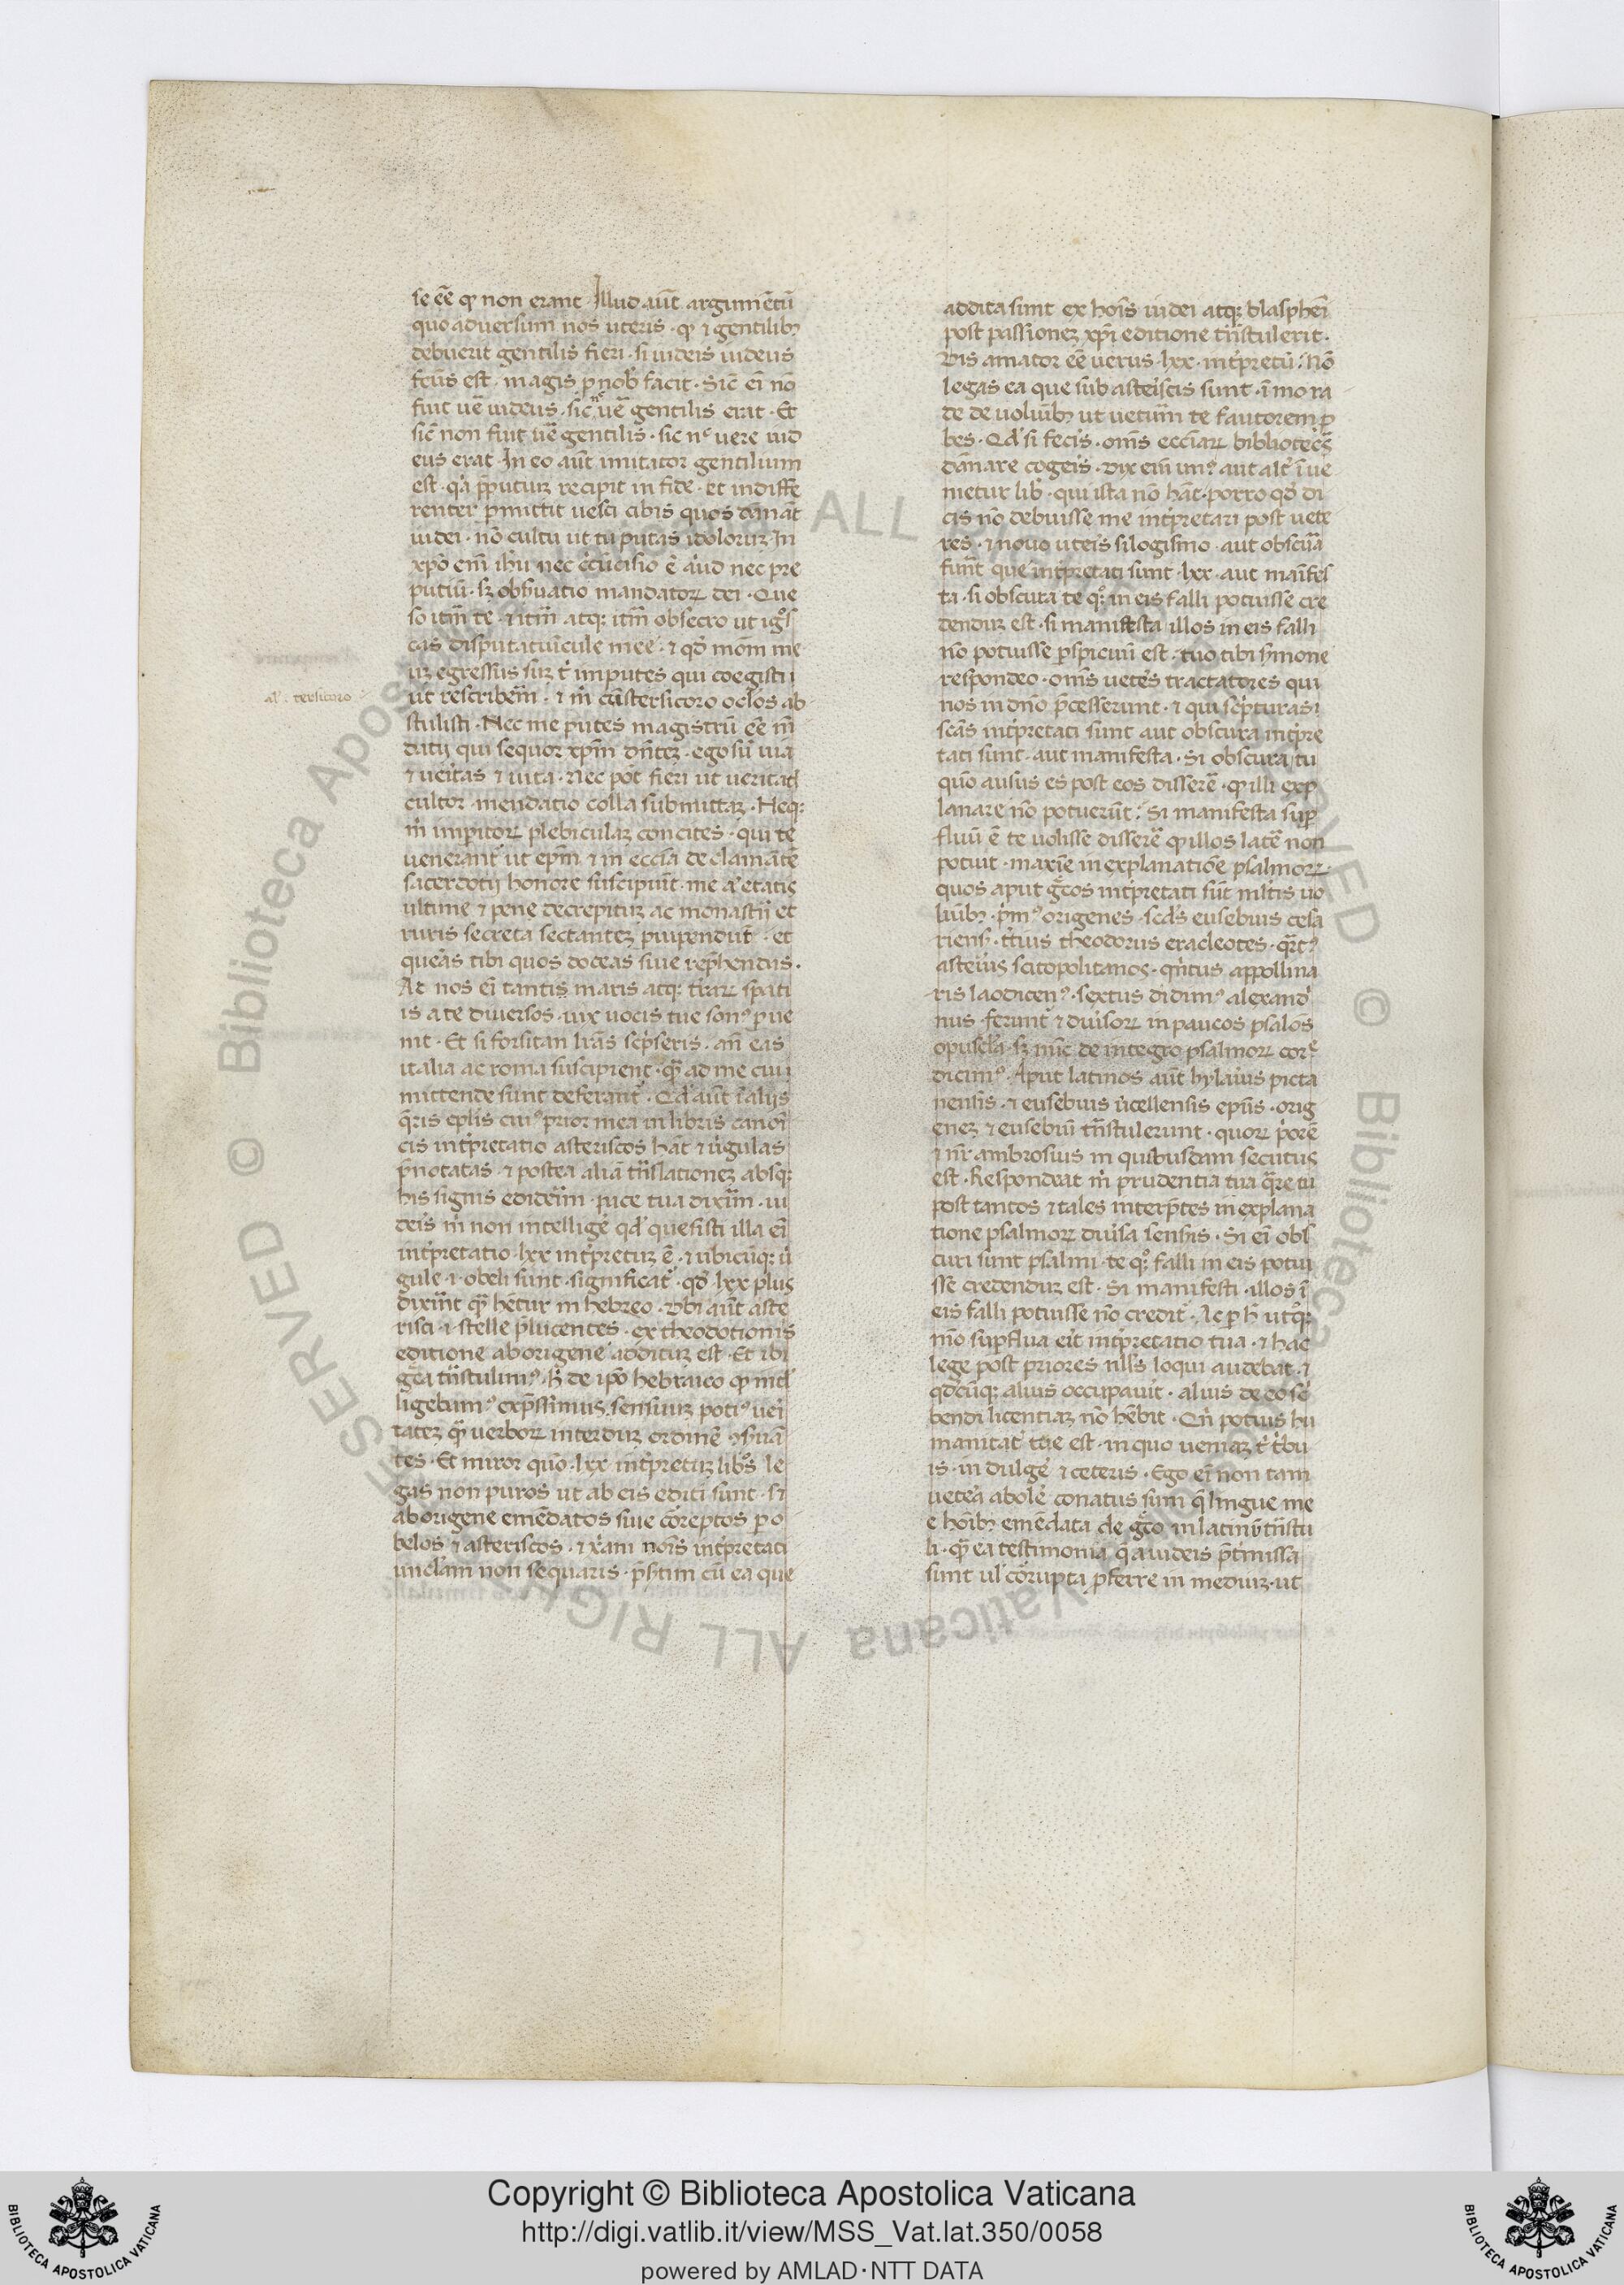 se eē qđ non erant. Illud aūt argumētū
quo adversum nos uteris. qđ ⁊ gentilibꝫ
debuerit gentilis fieri. si iudeis iudeus
fcūs est. magis ꝑ nob̄ facit. Sic̄ ei̅ nō
fuit ue͛ iudeus. sic nec ue͛ gentilis erat. Et
sic̄ non fuit ue͛ gentilis. sic nꝰ uere iud
eus erat. In eo aūt imitator gentilium
est. qa p̄putiuꝫ recipit in fide. et indiffe
renter ꝑmittit uesci cibis quos dānāt
iudei. nō cultu ut tu putas idoloruꝫ. In
xp̄o eni̅ ihū nec cc̄ūcisio ē a'ud nec pre
putiū. sꝫ obẜuatio mandatoꝝ dei. Que
so itm̄ te. ⁊ itm̄ atqꝫ itm̄ obsecro ut ig͛s
cas disputatiūcule mee. ⁊ qđ mōm me
uꝫ egressus suꝫ t' imputes qui coegisti
ut rescribem̄. ⁊ m̄ cū stersicoro oclos ab
stulisti. Nec me putes magistrū eē m̄
datij qui sequor xp̄m dn̄teꝫ. ego sū uia
⁊ ueitas ⁊ uita. Nec pōt fieri ut veritatis
cultor mendatio colla submittaꝫ. Neqꝫ
m̄ impitoꝝ plebiculaꝫ concites. qui te
venerant' ut ep̄m ⁊ in ecc̄ia declamātē
sacerdotij honore suscipiūt. me a͛ etatis
ultime ⁊ pene decrepituꝫ ac monastij et
ruris secreta sectanteꝫ ꝑuipendūt. et
queās tibi quos doceas siue rep̄hendas.
Ad nos ei̅ tantis maris atqꝫ t'raꝝ spati
is a te diuersos. uix uocis tue sonꝰ ꝑue
nit. Et si forsitan lr̄as sc̄pseris. an̄ eas
italia ac roma suscipient. qꝫ ad me cui
mittende sunt deferant'. Qđ aūt ī alijs
q̄ris ep̄lis cui' prior mea in libris canoi̅
cis int'pretatio asteriscos hāt ⁊ ūgulas
p̄notatas. ⁊ postea aliā tn̄slationeꝫ absqꝫ
his signis ediderim. pace tua dixerim. ui
deis m̄ non intellige͛ qđ quesisti illa ei̅
int'pretatio. lxx int'pretuꝫ ē. ⁊ ubicūqꝫ ū
gule. i. obeli sunt. significat'. qđ lxx plus
dixerint qꝫ het̄ur in hebreo. Ubi aūt aste
risci. i. stelle p̄lucentes. ex theodotionis
editione ab origene addituꝫ est. Et ibi
gc̄a tn̄stulimꝰ. h̄ de ip̄o hebraico qđ intel
ligebamꝰ exp̄ssimus. sensuuꝫ potiꝰ uei
tateꝫ qꝫ uerboꝝ interduꝫ ordinē ꝯẜuā
tes. Et miror quō. lxx int'pretuꝫ lib͛s le
gas non puros ut ab eis editi sunt. sꝫ
ab origene emēdatos siue corēptos ꝑ o
belos ⁊ asteriscos. ⁊ xp̄iani hōis int'pretati
unclam non sequaris. p̄ẜtim cū ea que
al'. tersicoro
addita sunt ex hoi̅s iudei atqꝫ blasphēi
post passioneꝫ xp̄i editione tn̄stulerit.
Uis amator eē uerus. lxx. int'pretū? Nō
legas ea que sub asteiscis sunt. īmo ra
de de uoluībꝫ ut uetium te fautorem ꝓ
bes. Qđ si fecis. om̄s ecc̄iaꝝ bibliotecas
dānare cogeis. Uix ei̅ unꝰ aut alt' īue
nietur lib'. qui ista nō hāt. porro qđ di
cis nō debuisse me int'pretari post uete
res. ⁊ nouo uteis silogismo. aut obscura
fuer̄t que int'pretati sunt. lxx. aut maīfes
ta. si obscura te qꝫ in eis falli potuisse cre
denduꝫ est. si manifesta illos in eis falli
nō potuisse ꝑspicuū est. tuo tibi ẜmone
respondeo. om̄s uetes tractatores qui
nos in dn̄o p̄cesserunt. ⁊ qui sc̄pturas
sc̄as int'pretati sunt aut obscura int'pre
tati sunt. aut manifesta. Si obscura tu
quō ausus es post eos dissere͛. qđ illi exp
lanare nō potuerūt? Si manifesta suꝑ
fluū ē te uolisse dissere͛ qđ illos late͛ non
potuit. maxīe in explanatiōe psalmoꝝ.
quos aput g͛cos int'pretati sūt mltis uo
luībꝫ. p'mꝰ origenes. scd's eusebius cesa
riensꝫ. t'tius theodorus eracleotes. q̄rtꝰ
asteius scitopolitanos. qn̄tus appollina
ris laodicenꝰ. sextus didimꝰ alexand'
nus. ferunt' ⁊ diuisoꝝ in paucos psalōs
opuscl̄a. sꝫ nūc de integro psalmoꝝ cor͛
dicimꝰ. Aput latinos aūt hylaius picta
uensis. ⁊ eusebius u͛cellensis ep̄us. orig
eneꝫ ⁊ eusebiū tn̄stulerunt. quoꝝ p'orē
⁊ nr̄ ambrosius in quibusdam secutus
est. Respondeat m̄ prudentia tua q̄re tu
post tantos ⁊ tales interp̄tes in explana
tione psalmoꝝ diuisa senseis. Si ei̅ obs
curi sunt psalmi. te qꝫ falli in eis potui
sse credenduꝫ est. Si manifesti. illos ī
eis falli potuisse nō credit'. Ac ꝑ h̄ utqꝫ
mō suꝑflua eit int'pretatio tua. ⁊ hac
lege post priores nll's loqui audebat. ⁊
qdcūqꝫ alius occupauit. alius de eo sc̄
bendi licentiaꝫ nō hēbit. Qn̄ potius hu
manitat' tue est. in quo ueniaꝫ t' t'bu
is. in dulge͛ ⁊ ceteris. Ego ei̅ non tam
uetea abole͛ conatus sum q̄ lingue me
e hoi̅bꝫ emēdata de g͛co in latinū tn̄stu
li. qꝫ ea testimonia q̄ a iudeis p̄t'missa
sunt ul' corupta ꝓferre in mediuꝫ. ut
Copyright © Biblioteca Apostolica Vaticana
http://digi.vatlib.it/view/MSS_Vat.lat.350/0058
powered by AMLAD·NTT DATA
© Biblioteca Apostolica Vaticana ALL RIGHTS RESERVED